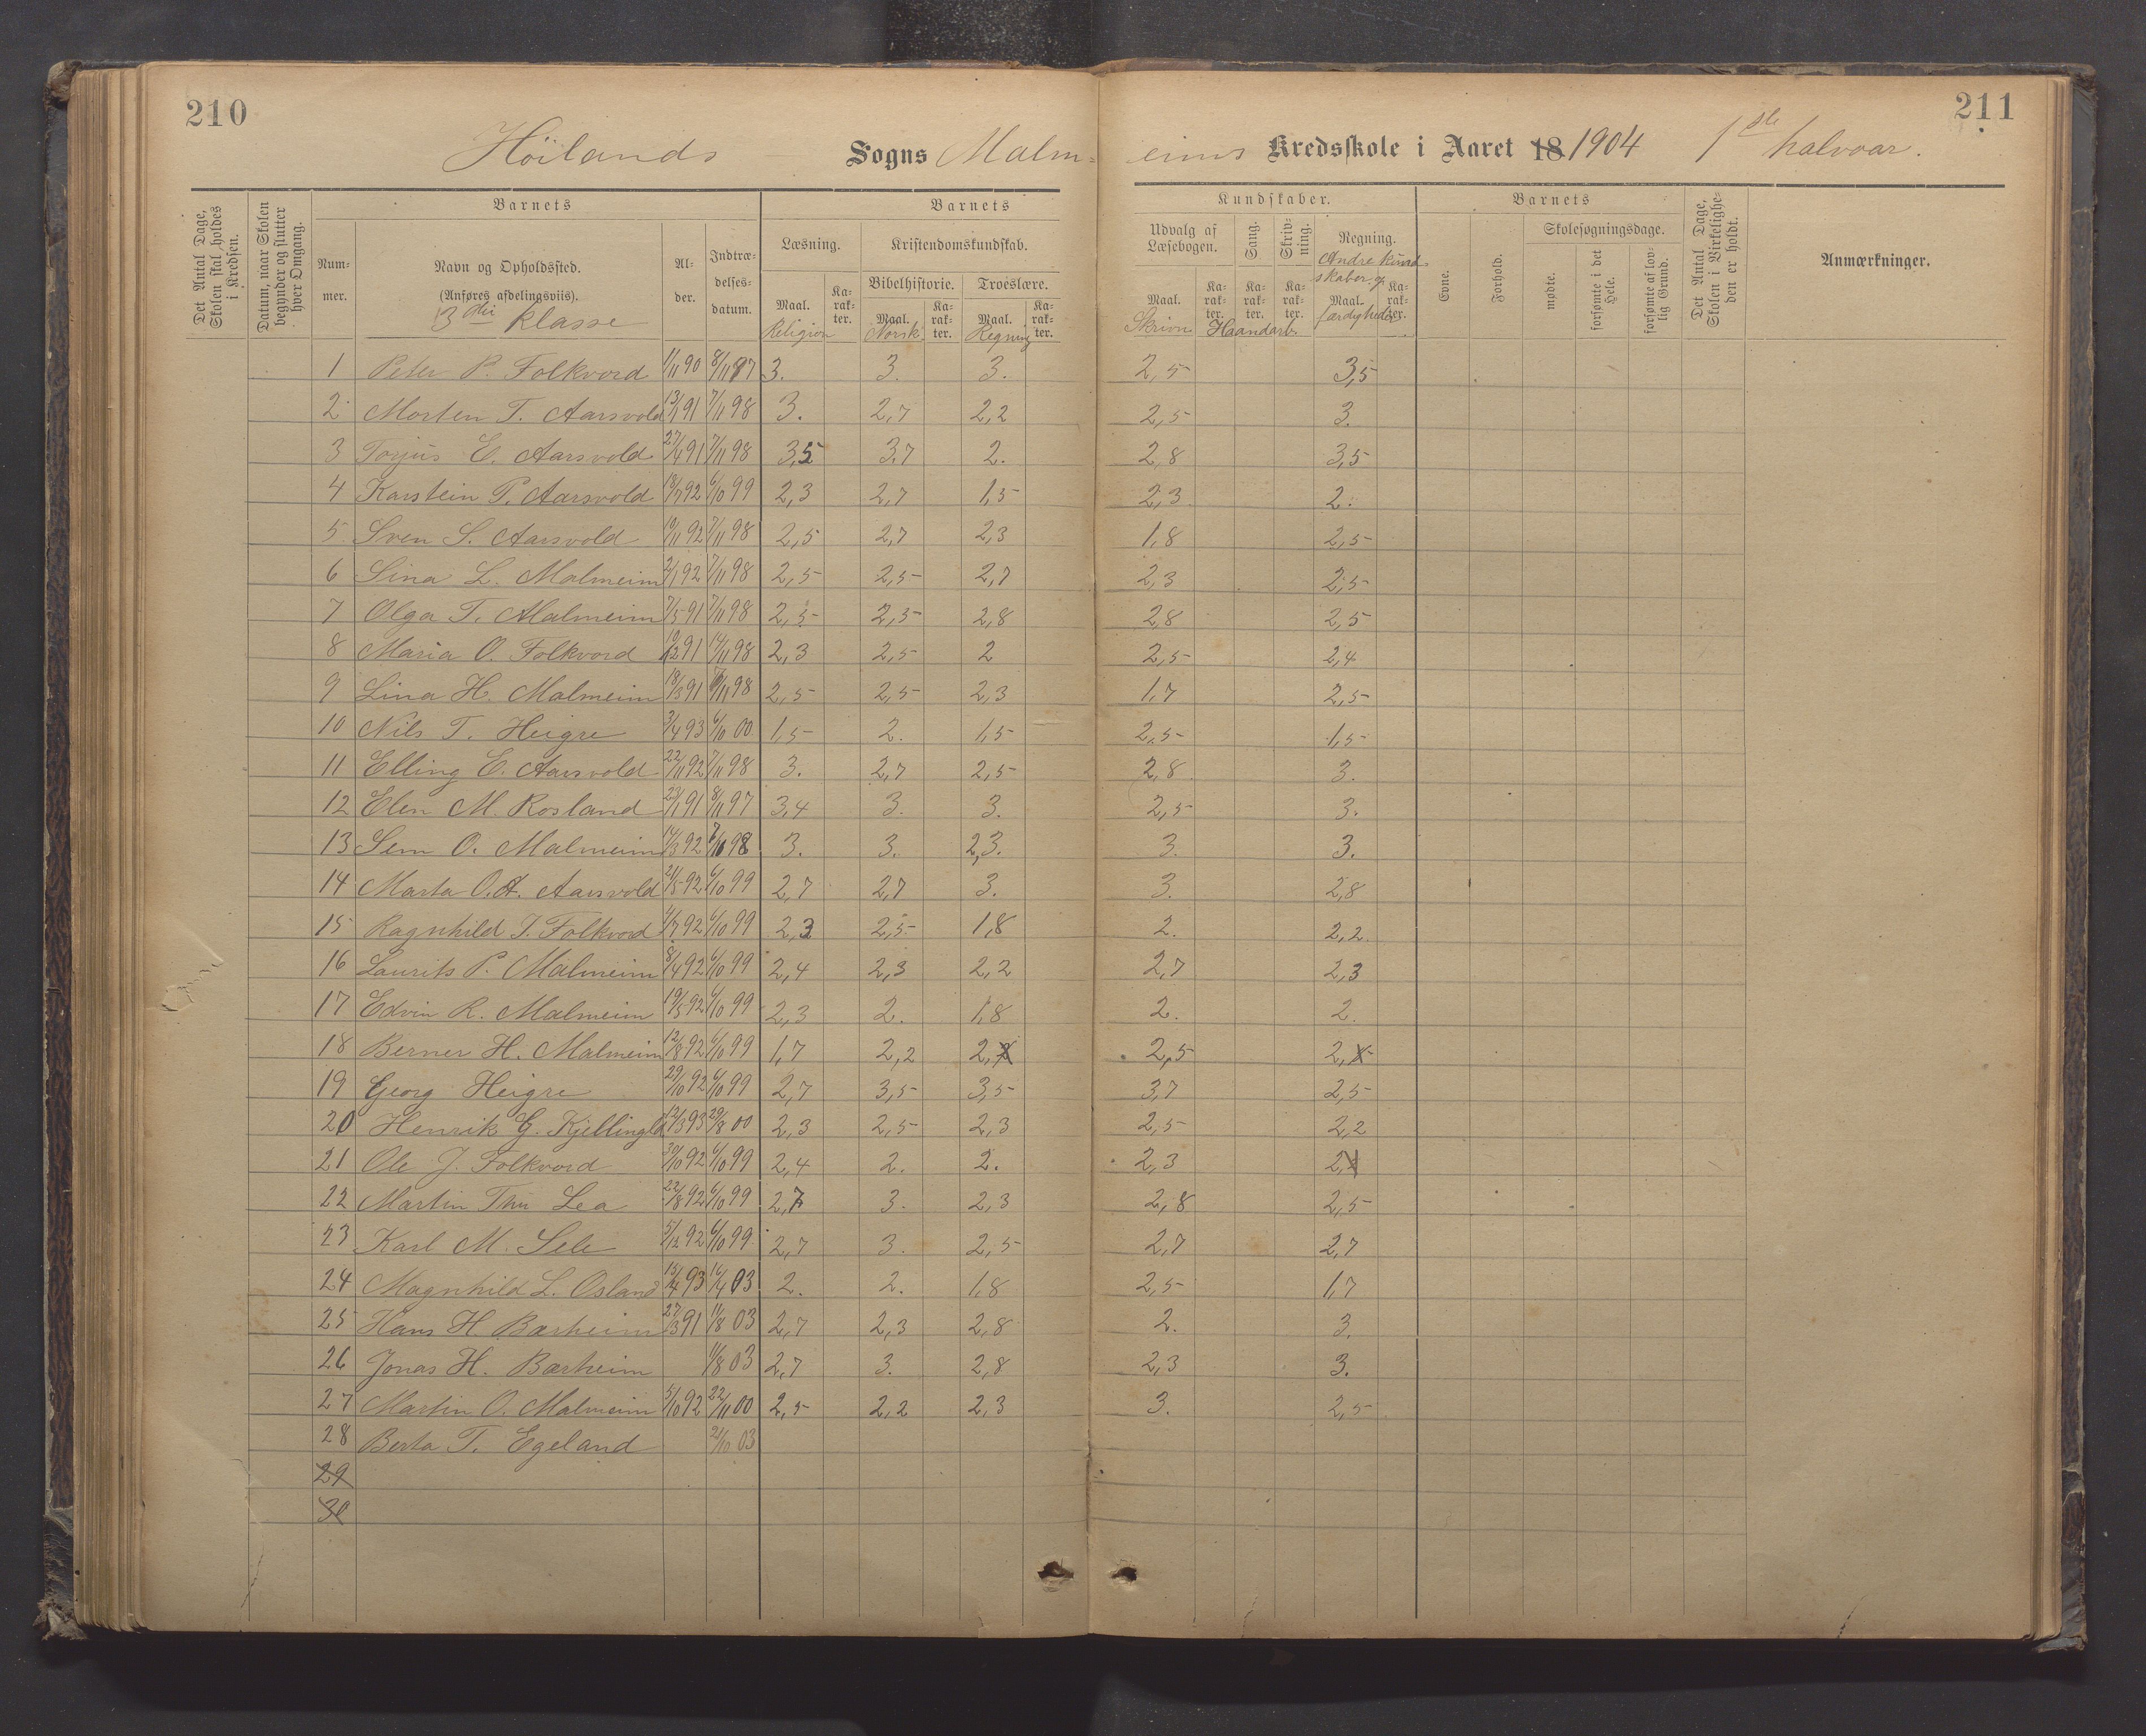 210
211
Höilands Sogns Malm- eims Kredsskole i Aaret 18 1904 1ste halvaar.
Det Antal Dage, Skolen skal holdes i Kredsen.
Datum, naar Skolen begynder og slutter hver Omgang.
Barnets
Num- mer.
Navn og Opholdssted.
(Anføres afdelingsviis).
3die Klasse
Al- der.
Indtræ- delses- datum.
Barnets
Læsning.
Maal. Ka- rak- ter.
Religion
Kristendomskundskab.
Bibelhistorie. Troeslære.
Maal. Ka- rak- ter. Maal. Ka- rak- ter.
Norsk Regning
Kundskaber.
Udvalg af Læsebogen. Sang. Skriv- ning. Regning.
Andre Kund- skaber og færdigheder
Maal. Ka- rak- ter. Ka- rak- ter. Ka- rak- ter. Maal. Ka- rak- ter.
Skrivn Haandarb.
Barnets
Evne. Forhold.
Skolesøgningsdage.
mødte. forsømte i det Hele. forsømte af lov- lig Grund.
Det Antal Dage, Skolen i Virkelighe- den er holdt.
Anmærkninger.
1 Peter P. Folkvord 1/11 90 8/11 97 3. 3. 3. 2,5 3,5
2 Morten T. Aarsvold 13/1 91 7/11 98 3. 2,7 2,2 2,5 3.
3 Torjus E. Aarsvold 27/4 91 7/11 98 3,5 3,7 2. 2,8 3,5
4 Karstein P. Aarsvold 18/7 92 6/10 99 2,3 2,7 1,5 2,3 2.
5 Sven S. Aarsvold 10/11 92 7/11 98 2,5 2,7 2,3 1,8 2,5
6 Sina L. Malmeim 2/1 92 7/11 98 2,5 2,5 2,7 2,3 2,5
7 Olga T. Malmeim 7/5 91 7/11 98 2,5 2,5 2,8 2,8 2,5
8 Maria O. Folkvord 10/12 91 14/11 98 2,3 2,5 2 2,5 2,4
9 Lina H. Malmeim 18/3 91 7/11 98 2,5 2,5 2,3 1,7 2,5
10 Nils T. Heigre 3/4 93 6/10 00 1,5 2. 1,5 2,5 1,5
11 Elling E. Aarsvold 22/11 92 7/11 98 3. 2,7 2,5 2,8 3.
12 Elen M. Rosland 23/1 91 8/11 97 3,4 3. 3. 2,5 3.
13 Sem O. Malmeim 14/3 92 7/10 98 3. 3. 2,3. 3. 3.
14 Marta O.A. Aarsvold 21/5 92 6/10 99 2,7 2,7 3. 3. 2,8
15 Ragnhild J. Folkvord 4/7 92 6/10 99 2,3 2,5 1,8 2. 2,2
16 Laurits P. Malmeim 8/4 92 6/10 99 2,4 2,3 2,2 2,7 2,3
17 Edvin R. Malmeim 19/5 92 6/10 99 2,3 2. 1,8 2. 2.
18 Berner H. Malmeim 12/8 92 6/10 99 1,7 2,2 2, 2,5 2,
19 Georg Heigre 29/10 92 6/10 99 2,7 3,5 3,5 3,7 2,5
20 Henrik G. Kjellingla 12/3 93 29/8 00 2,3 2,5 2,3 2,5 2,2
21 Ole J. Folkvord 30/10 92 6/10 99 2,4 2. 2. 2,3 2,
22 Martin Thu Lea 22/8 92 6/10 99 2,7 3. 2,3 2,8 2,5
23 Karl M. Sele 5/12 92 6/10 99 2,7 3. 2,5 2,7 2,7
24 Magnhild L. Osland 15/4 93 16/4 03 2. 2. 1,8 2,5 1,7
25 Hans H Barheim 27/3 91 11/8 03 2,7 2,3 2,8 2. 3.
26 Jonas H. Barheim 11/8 03 2,7 3. 2,8 2,3 3.
27 Martin O. Malmeim 5/10 92 22/11 00 2,5 2,2 2,3 3. 2,5
28 Berta T. Egeland 21/10 03
29
30